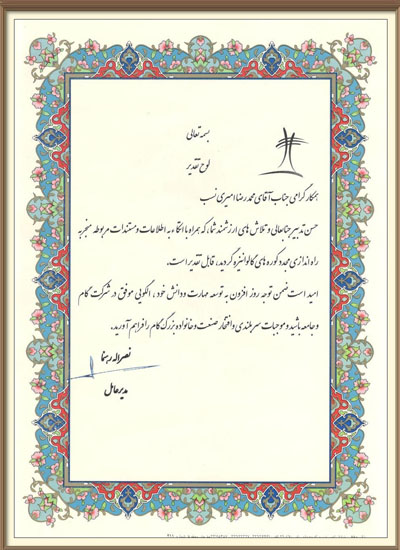 بسمه تعالی
لوح تقدیر
همکار گرامی جناب آقای محمدرضا امیری نسب
حسن تدبیر جنابعالی و تلاش های ارزشمند شما، که همراه با اتکاء به اطلاعات و مستندات مربوطه منجر به
راه اندازی مجدد کوره های کالوانیزه گردید، قابل تقدیر است.
امید است ضمن توجه روز افزون به توسعه مهارت و دانش خود، الگویی موفق در شرکت گام
و جامعه باشید و موجبات سربلندی و افتخار صنعت و خانواده بزرگ گام را فراهم آورید.
نصراله رهنما
مدیرعامل